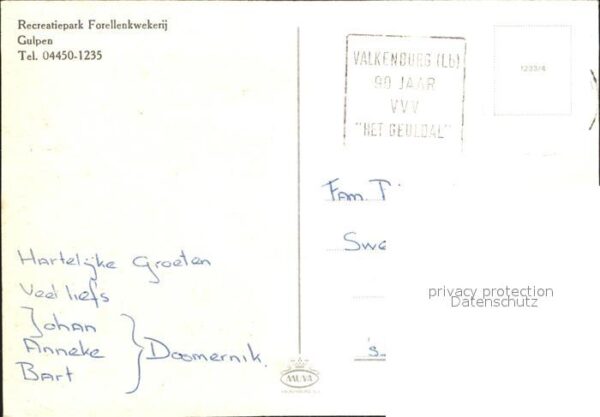 Recreatiepark Forellenkwekerij
Gulpen
Tel. 04450-1235
VALKENBURG (Lb)
90 JAAR
VVV
"HET GEULDAL"
1233/4
Fam.
privacy protection
Datenschutz
Hartelijke Groeten
Veel liefs
Johan
Anneke
Bart
Doomernik.
MUVA